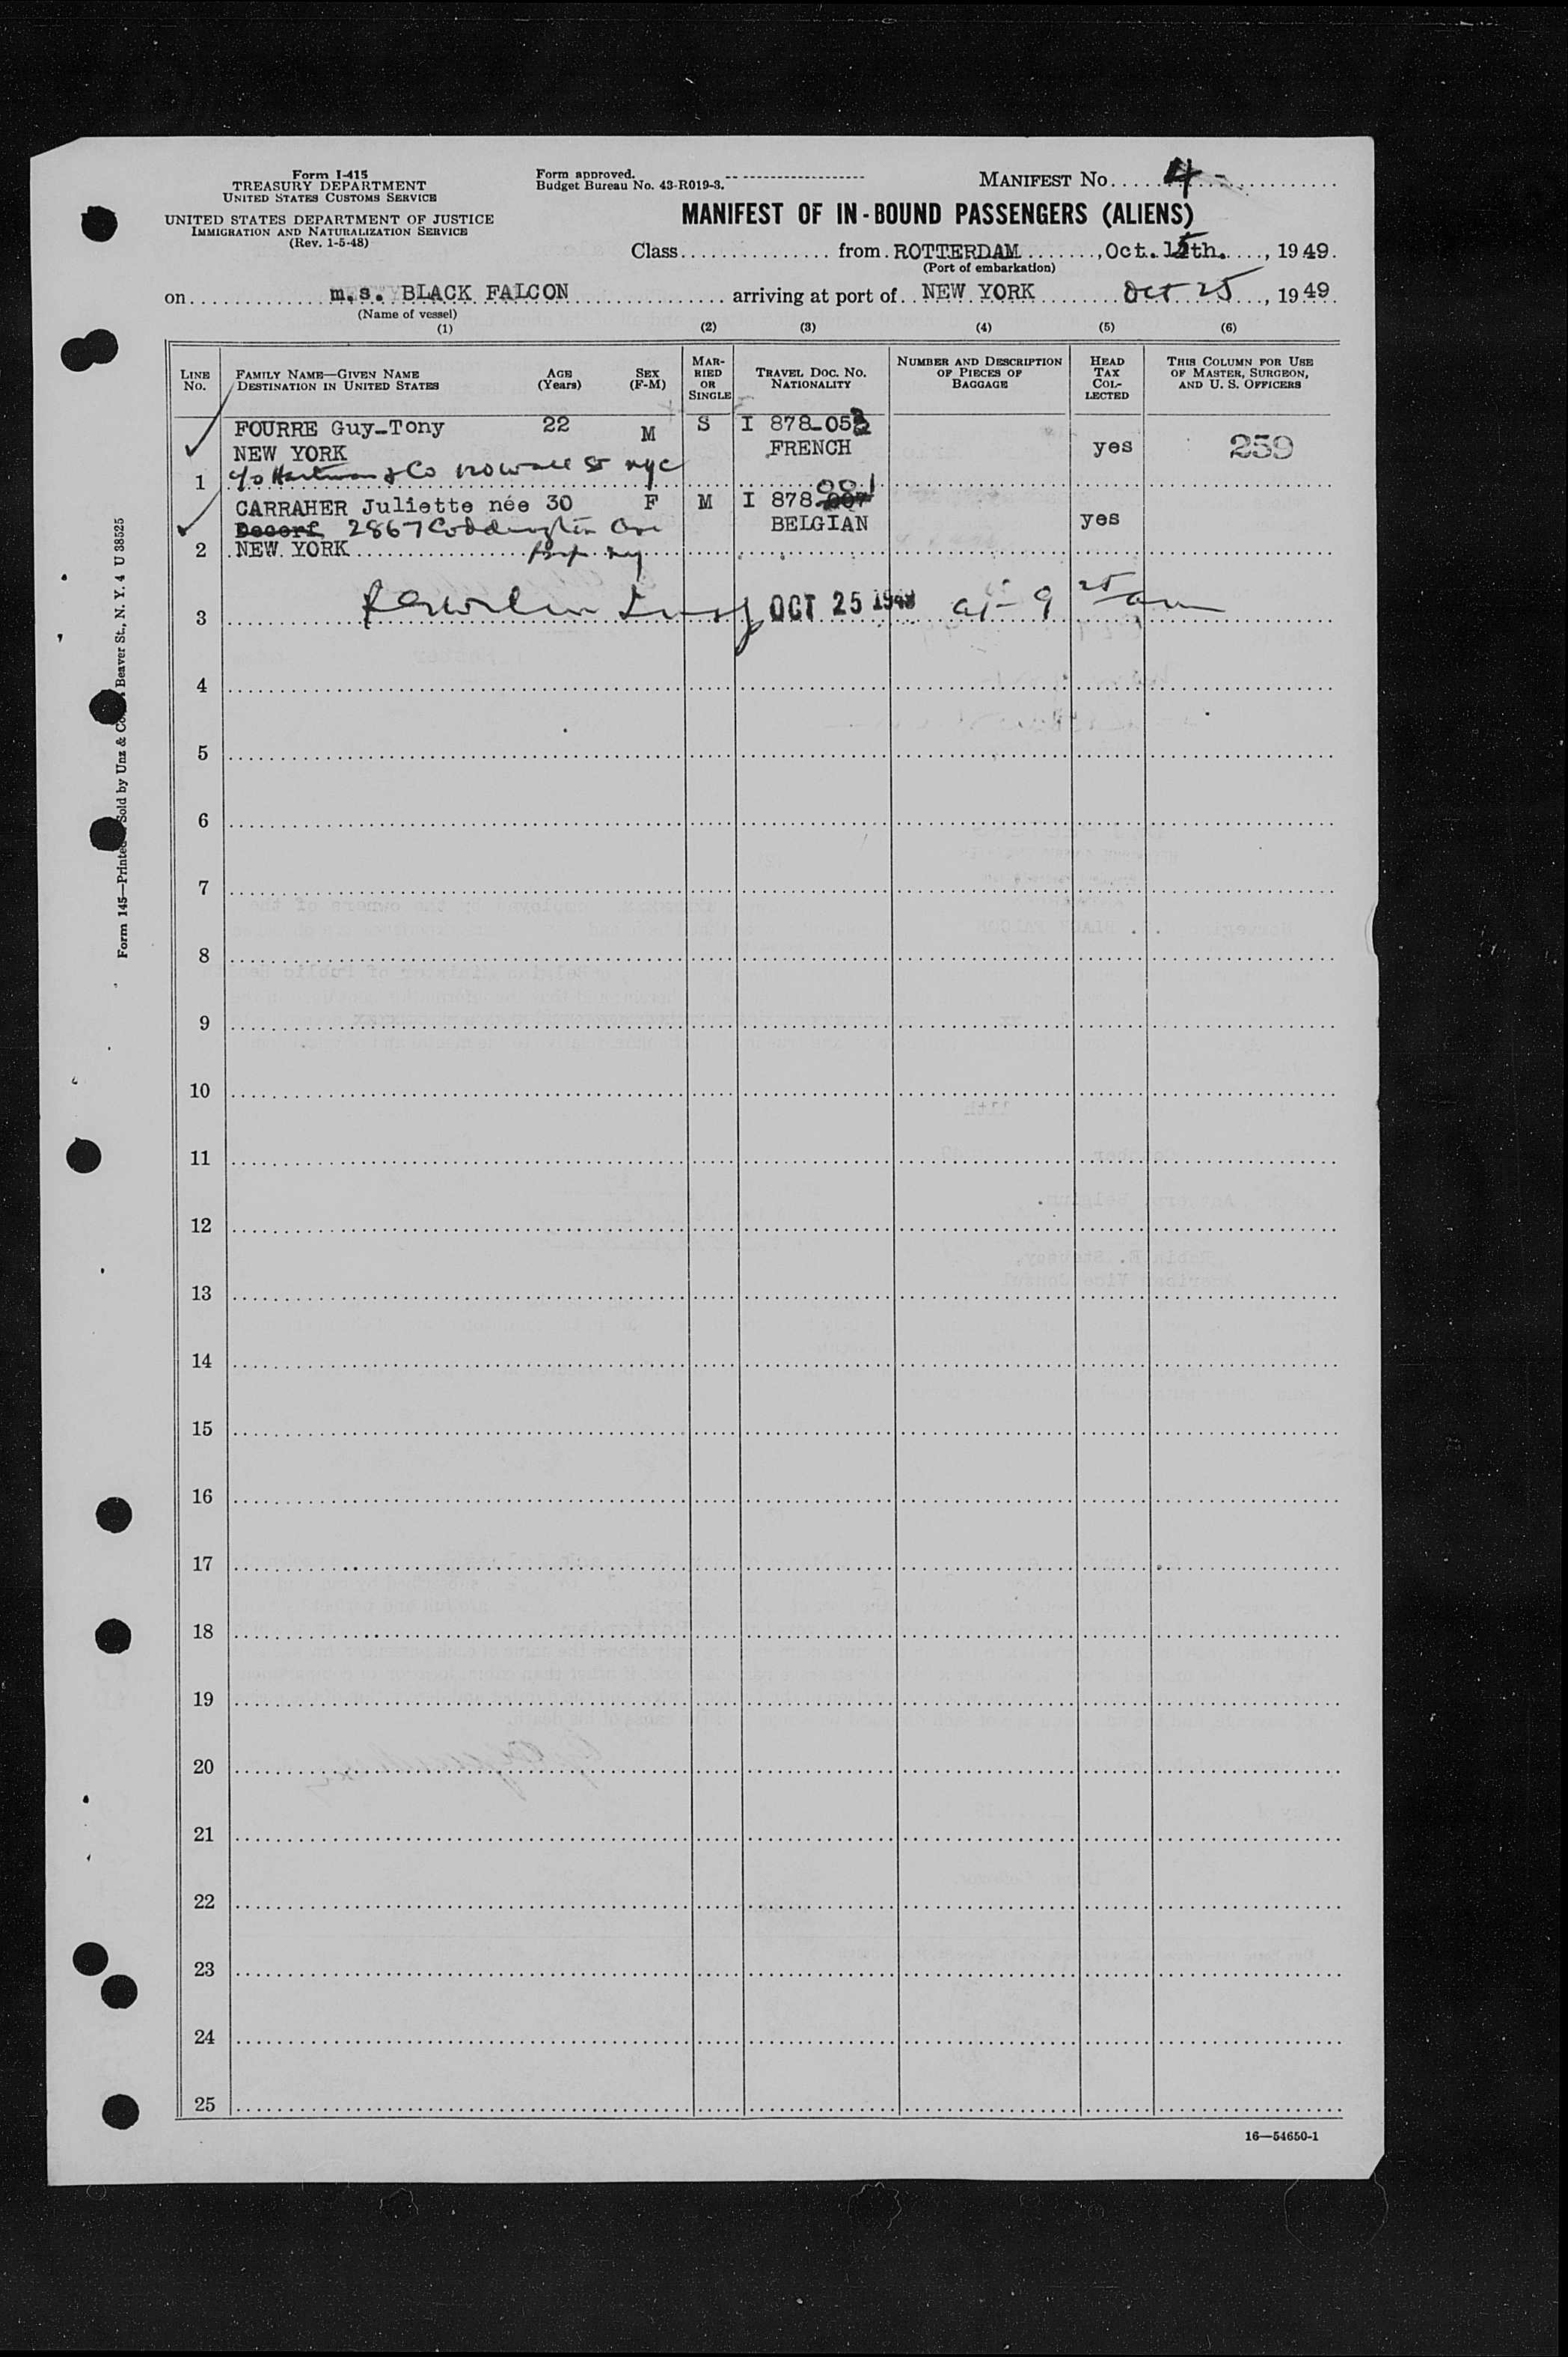 Form I-415
TREASURY DEPARTMENT
UNITED STATES CUSTOMS SERVICE
UNITED STATES DEPARTMENT OF JUSTICE
IMMIGRATION AND NATURALIZATION SERVICE
(Rev. 1-5-48)
Form approved.
Budget Bureau No. 43-R019-3.
MANIFEST No. 4
MANIFEST OF IN-BOUND PASSENGERS (ALIENS)
Class from ROTTERDAM, Oct. 15th., 1949.
(Port of embarkation)
on m.s. BLACK FALCON arriving at port of NEW YORK Oct 25, 1949.
(Name of vessel)
(1) (2) (3) (4) (5) (6)
LINE No. FAMILY NAME—GIVEN NAME DESTINATION IN UNITED STATES AGE (Years) SEX (F-M) MARRIED OR SINGLE TRAVEL DOC. NO. NATIONALITY NUMBER AND DESCRIPTION OF PIECES OF BAGGAGE HEAD TAX COLLECTED THIS COLUMN FOR USE OF MASTER, SURGEON, AND U. S. OFFICERS
FOURRE Guy-Tony 22 M S I 878-053
NEW YORK FRENCH yes 259
1 c/o Hartman & Co 120 Wall St NYC
CARRAHER Juliette née 30 F M I 878 981
Decorf 2867 Coddington Ave BELGIAN yes
2 NEW YORK Bx NY
3 OCT 25 1949 at 9 25 am
4
5
6
7
8
9
10
11
12
13
14
15
16
17
18
19
20
21
22
23
24
25
16—54650-1
Form 145—Printed Sold by Unz & Co. Beaver St., N. Y. 4 U 38525